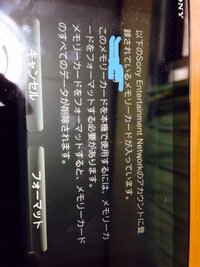 SONY
以下のSony Entertainment Networkのアカウントに登
録されているメモリーカードが入っています。
このメモリーカードを本機で使用するには、メモリーカ
ードをフォーマットする必要があります。
メモリーカードをフォーマットすると、メモリーカード
のすべてのデータが削除されます。
キャンセル
フォーマット